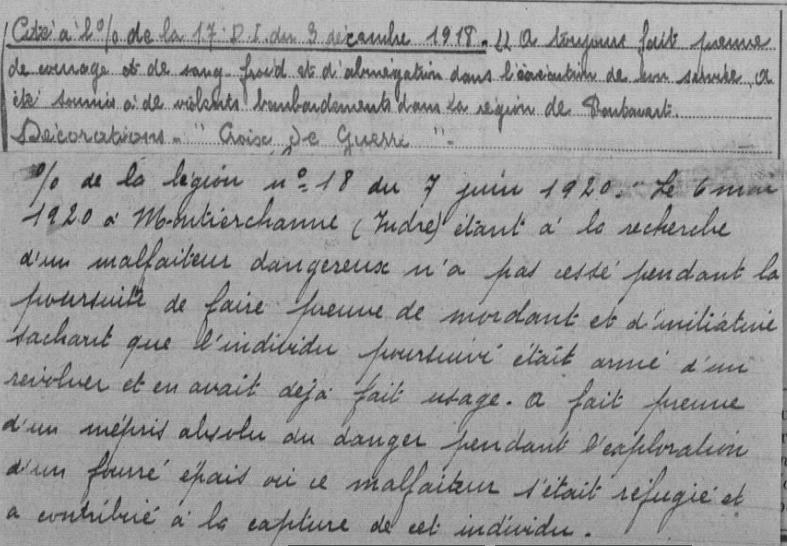 Cité à l'o/o de la 17e D.I. du 3 décembre 1918. " A toujours fait preuve
de courage et de sang froid et d'abnégation dans l'exécution de son service, a
été soumis à de violents bombardements dans la région de
Décorations. " Croix de Guerre ".
o/o de la légion n° 18 du 7 juin 1920. " Le 6 mai
1920 à Montierchaume (Indre) étant à la recherche
d'un malfaiteur dangereux n'a pas cessé pendant la
poursuite de faire preuve de mordant et d'initiative
sachant que l'individu poursuivi était armé d'un
revolver et en avait déjà fait usage. A fait preuve
d'un mépris absolu du danger pendant l'exploration
d'un fourré épais où ce malfaiteur s'était réfugié et
a contribué à la capture de cet individu.